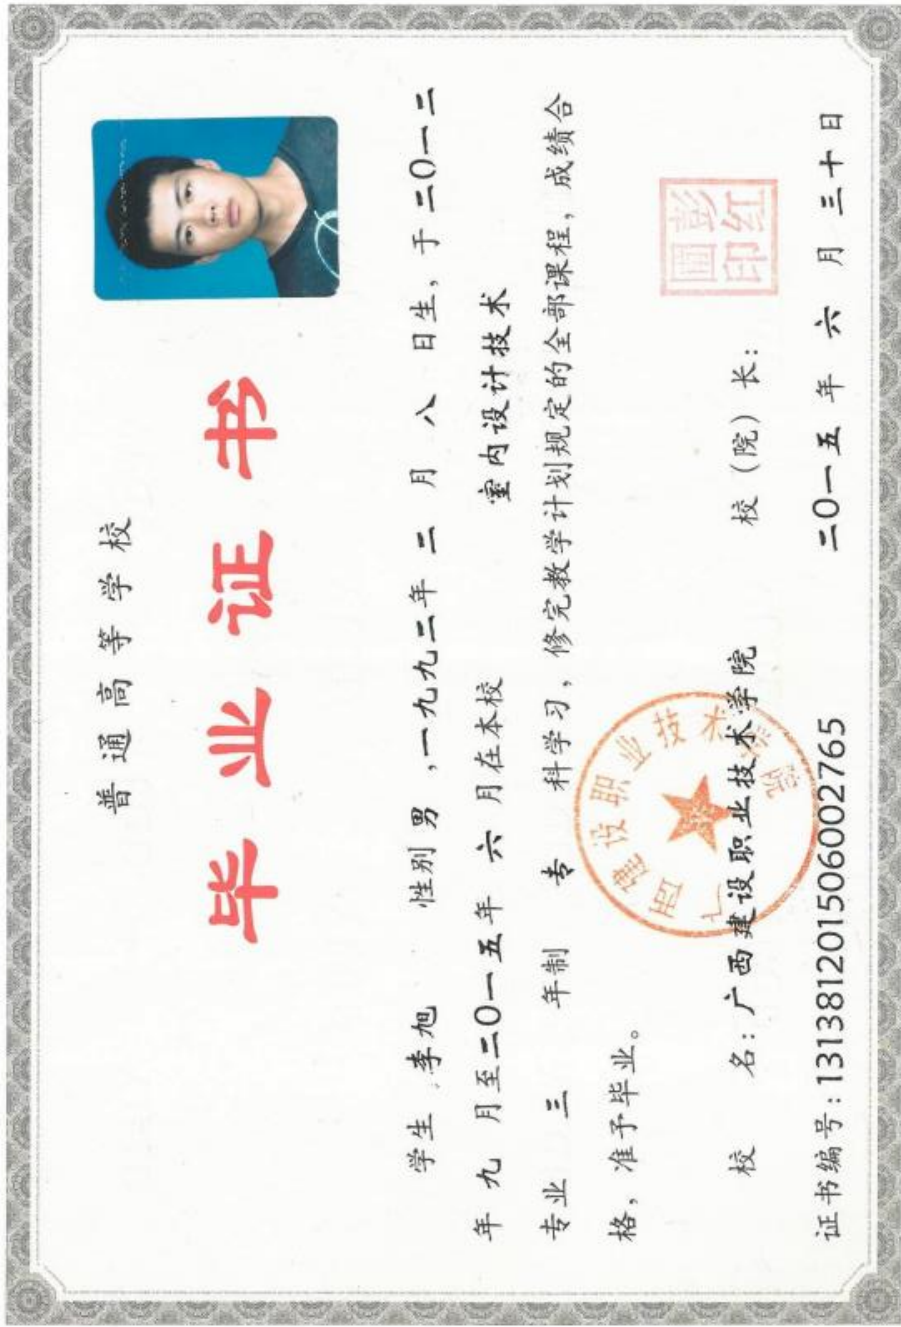 普通高等学校
毕业证书
学生 李旭 性别 男 ,一九九二年 二 月 八 日生，于二〇一二
年 九 月至二〇一五年 六 月在本校 室内设计技术
专业 三 年制 专 科学习，修完教学计划规定的全部课程，成绩合
格，准予毕业。
校 名：广西建设职业技术学院 校（院）长：
彭红圃印
广西建设职业技术学院
证书编号：131381201506002765 二〇一五 年 六 月 三十 日